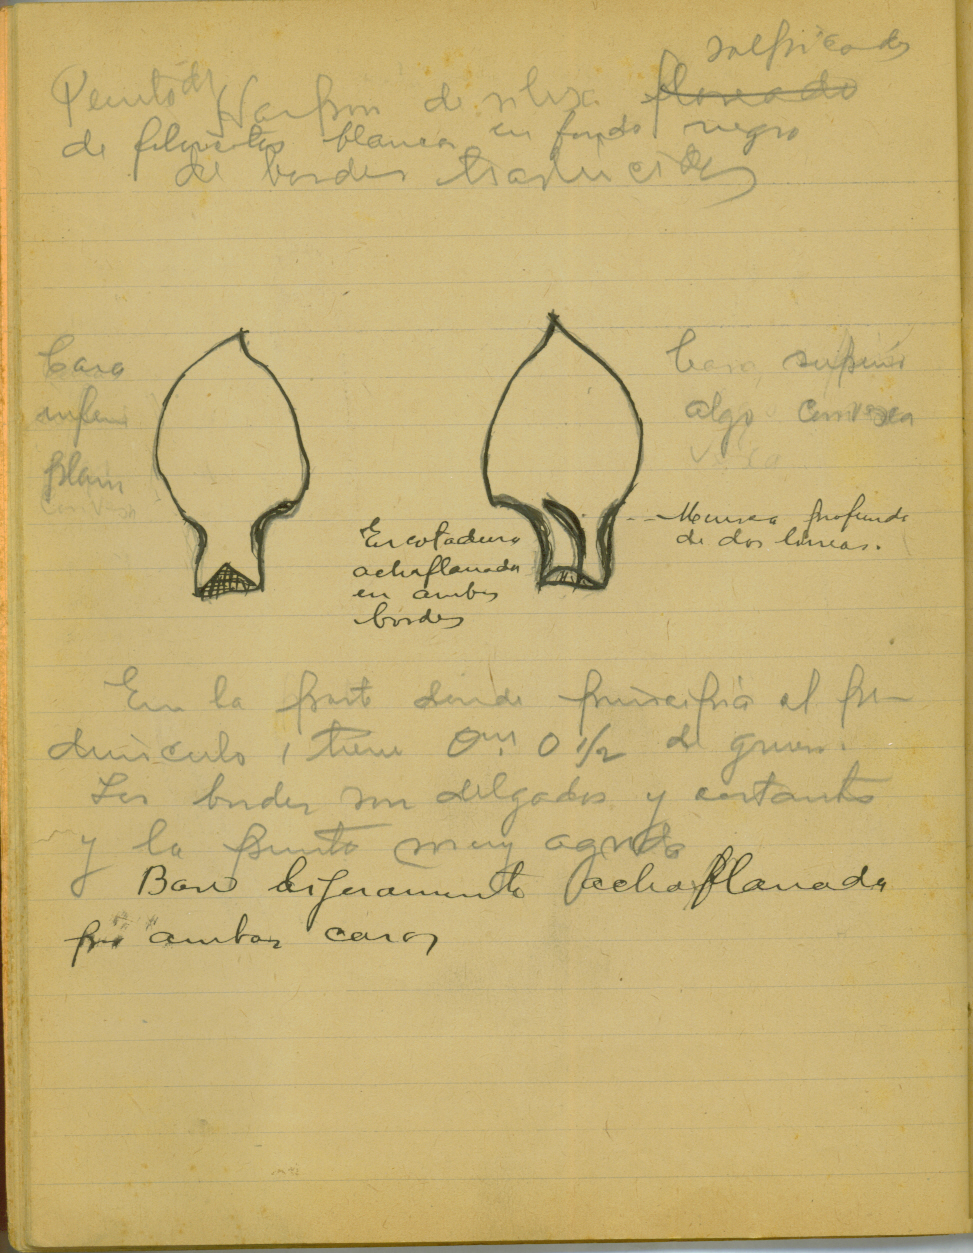 salpicado
Punta de Harpon de silex floreado
de filoncitos blancos en fondo negro
de bordes traslucidos
Cara
inferior
plana
convexa
Cara superior
algo convexa
Escotadura
achaflanada
en ambos
bordes
Muesca profunda
de dos lineas.
En la parte donde principia el pe-
dunculo, tiene 0m. 0 1/2 de grueso.
Los bordes son delgados y cortantes
y la punta muy aguda
Base ligeramente achaflanada
por ambas caras